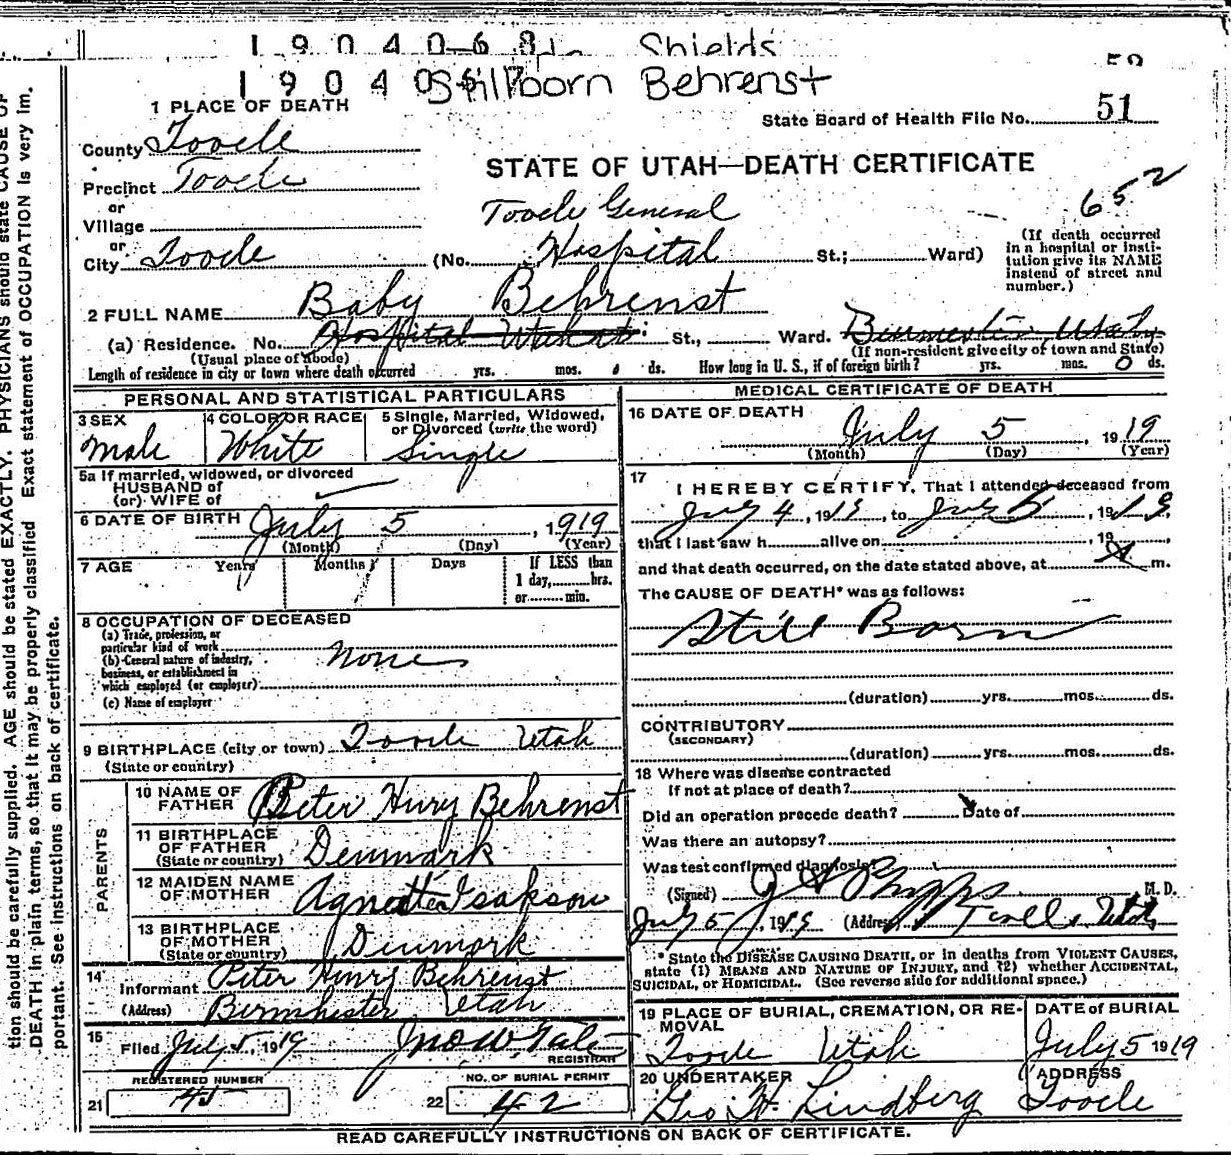 1 9 0 4 0 6 8 Shields
1 9 0 4 0 Stillborn Behrenst
1 PLACE OF DEATH
State Board of Health File No. 51
County Tooele
STATE OF UTAH—DEATH CERTIFICATE
Precinct Tooele
or
Village
or
City Tooele (No. Tooele General Hospital St.; Ward)
652
(If death occurred
in a hospital or insti-
tution give its NAME
instead of street and
number.)
2 FULL NAME Baby Behrenst
(a) Residence. No. Hospital St., Ward. Utah
(Usual place of abode) (If non-resident give city of town and State)
Length of residence in city or town where death occurred yrs. mos. ds. How long in U. S., if of foreign birth? yrs. mos. 0 ds.
PERSONAL AND STATISTICAL PARTICULARS
3 SEX
Male
4 COLOR OR RACE
White
5 Single, Married, Widowed,
or Divorced (write the word)
Single
5a If married, widowed, or divorced
HUSBAND OF
(or) WIFE OF
6 DATE OF BIRTH July 5, 1919
(Month) (Day) (Year)
7 AGE Years Months Days If LESS than
1 day, hrs.
or min.
8 OCCUPATION OF DECEASED
(a) Trade, profession, or
particular kind of work
(b) General nature of industry,
business, or establishment in
which employed (or employer)
None
(c) Name of employer
9 BIRTHPLACE (city or town) Tooele Utah
(State or country)
PARENTS
10 NAME OF
FATHER Peter Henry Behrenst
11 BIRTHPLACE
OF FATHER
(State or country) Denmark
12 MAIDEN NAME
OF MOTHER Agnetta Isakson
13 BIRTHPLACE
OF MOTHER
(State or country) Denmark
14 Informant Peter Henry Behrenst
(Address) Burmester Utah
15 Filed July 5, 1919 Jno W Tate
REGISTRAR
REGISTERED NUMBER
21 45
NO. OF BURIAL PERMIT
22 42
MEDICAL CERTIFICATE OF DEATH
16 DATE OF DEATH
July 5, 1919
(Month) (Day) (Year)
17 I HEREBY CERTIFY, That I attended deceased from
July 4, 1919, to July 5, 1919,
that I last saw h alive on , 19 ,
and that death occurred, on the date stated above, at m.
The CAUSE OF DEATH* was as follows:
Still Born
(duration) yrs. mos. ds.
CONTRIBUTORY
(SECONDARY)
(duration) yrs. mos. ds.
18 Where was disease contracted
if not at place of death?
Did an operation precede death? Date of
Was there an autopsy?
Was test confirmed diagnosis?
(Signed) M. D.
July 5, 1919 (Address) Utah
* State the DISEASE CAUSING DEATH, or in deaths from VIOLENT CAUSES,
state (1) MEANS AND NATURE OF INJURY, and (2) whether ACCIDENTAL,
SUICIDAL, or HOMICIDAL. (See reverse side for additional space.)
19 PLACE OF BURIAL, CREMATION, OR RE-
MOVAL
Tooele Utah
DATE OF BURIAL
July 5 1919
20 UNDERTAKER
Geo H. Lindberg
ADDRESS
Tooele
READ CAREFULLY INSTRUCTIONS ON BACK OF CERTIFICATE.
tion should be carefully supplied. AGE should be stated EXACTLY. PHYSICIANS should state CAUSE OF
DEATH in plain terms, so that it may be properly classified Exact statement of OCCUPATION is very im.
portant. See instructions on back of certificate.